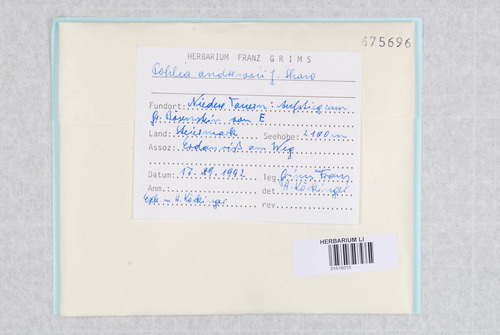 675696
HERBARIUM FRANZ GRIMS
Pohlia andrewsii f. Shaw
Fundort: Niedere Tauern: Aufstieg zum
gr. Bösenstein von E
Land: Steiermark Seehöhe: 2100m
Assoz: Erdanriß am Weg
Datum: 17.09.1992 leg. Grims Franz
Anm.: det. H. Köckinger
Exk. m. H. Köckinger rev.
HERBARIUM LI